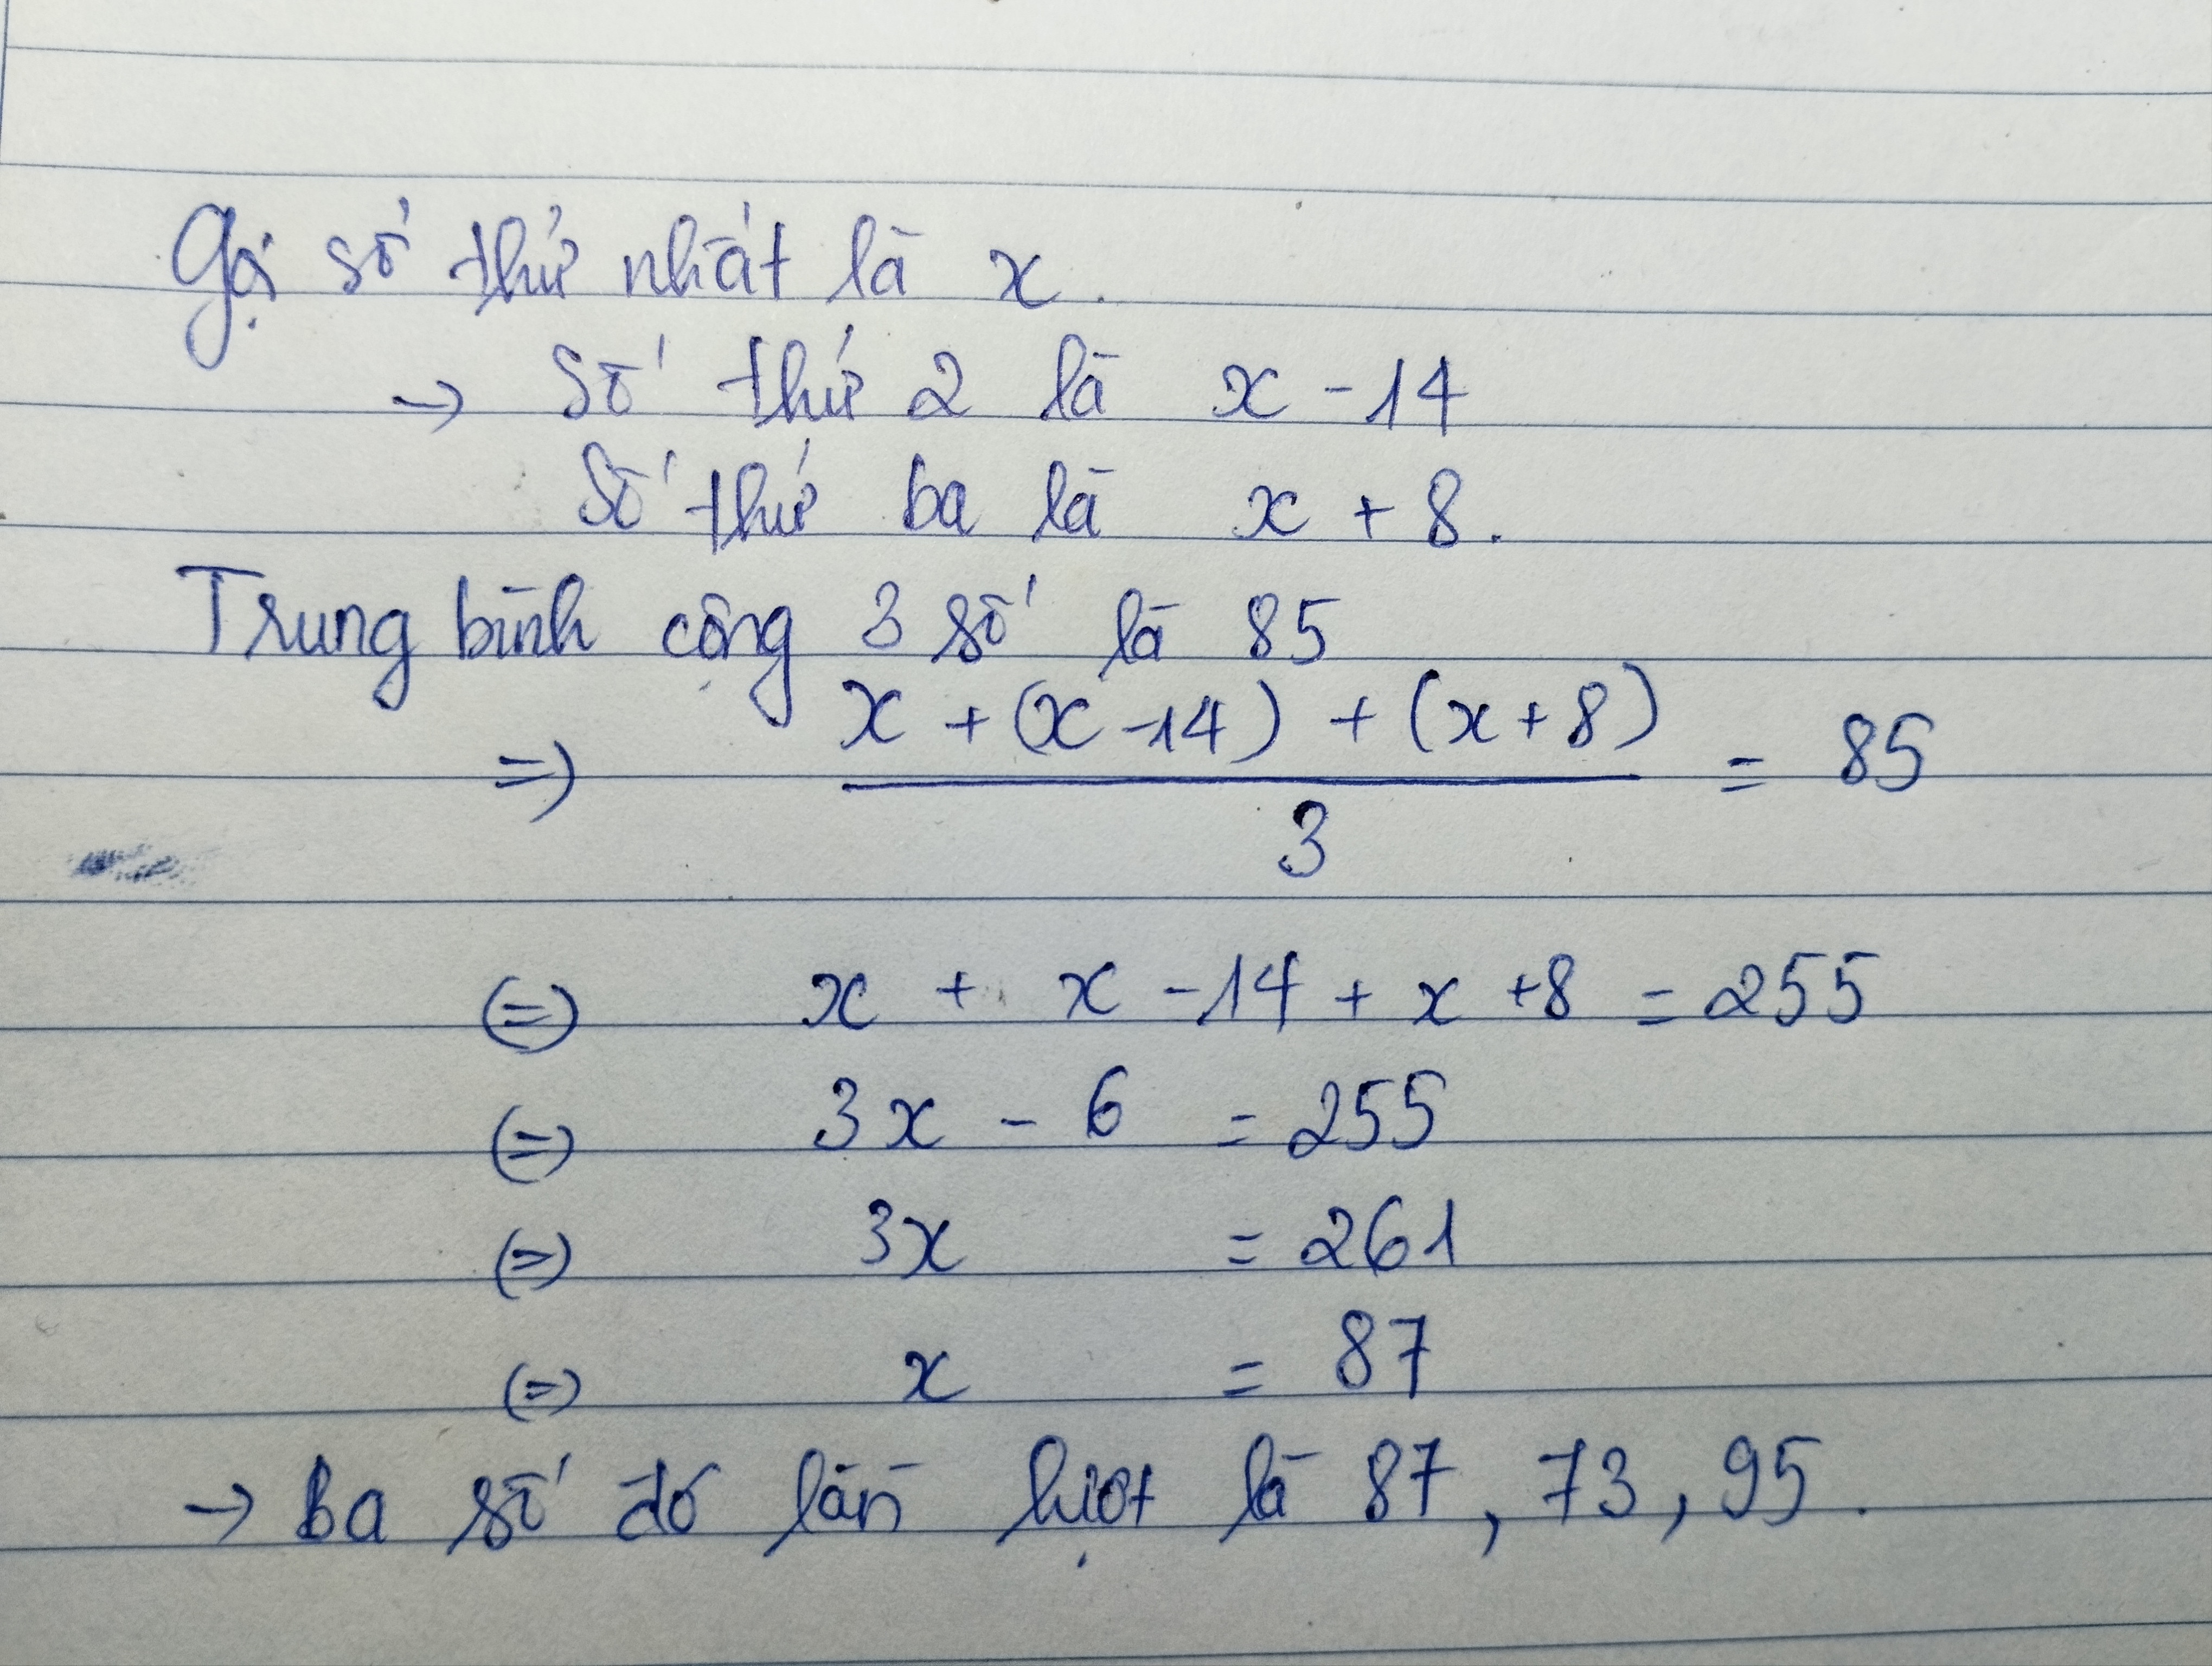 Gọi số thứ nhất là x.
→ Số thứ 2 là x - 14
Số thứ ba là x + 8.
Trung bình cộng 3 số là 85
=) x + (x - 14) + (x + 8) = 85
3
(=) x + x - 14 + x + 8 = 255
(=) 3x - 6 = 255
(=) 3x = 261
(=) x = 87
→ Ba số đó lần lượt là 87, 73, 95.